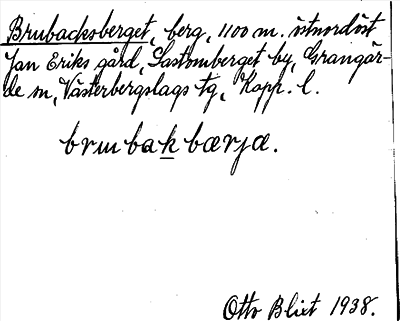 Brubacksberget, berg, 1100 m. östnordöst
Jan Eriks gård, Saxtomberget by, Grangär-
de sn, Västerbergslags tg, Kopp. l.
brubak bærjæ.
Otto Blixt 1938.